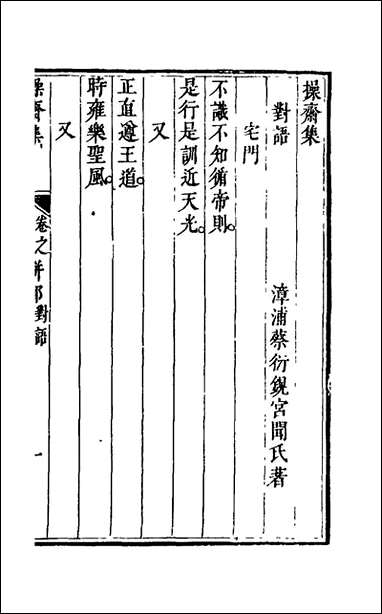 操齋集
對語
漳浦蔡衍鎤宮聞氏著
宅門
不識不知循帝則。
是行是訓近天光。
又
正直遵王道。
時雍樂聖風。
又
操齋集
卷之
對語
一